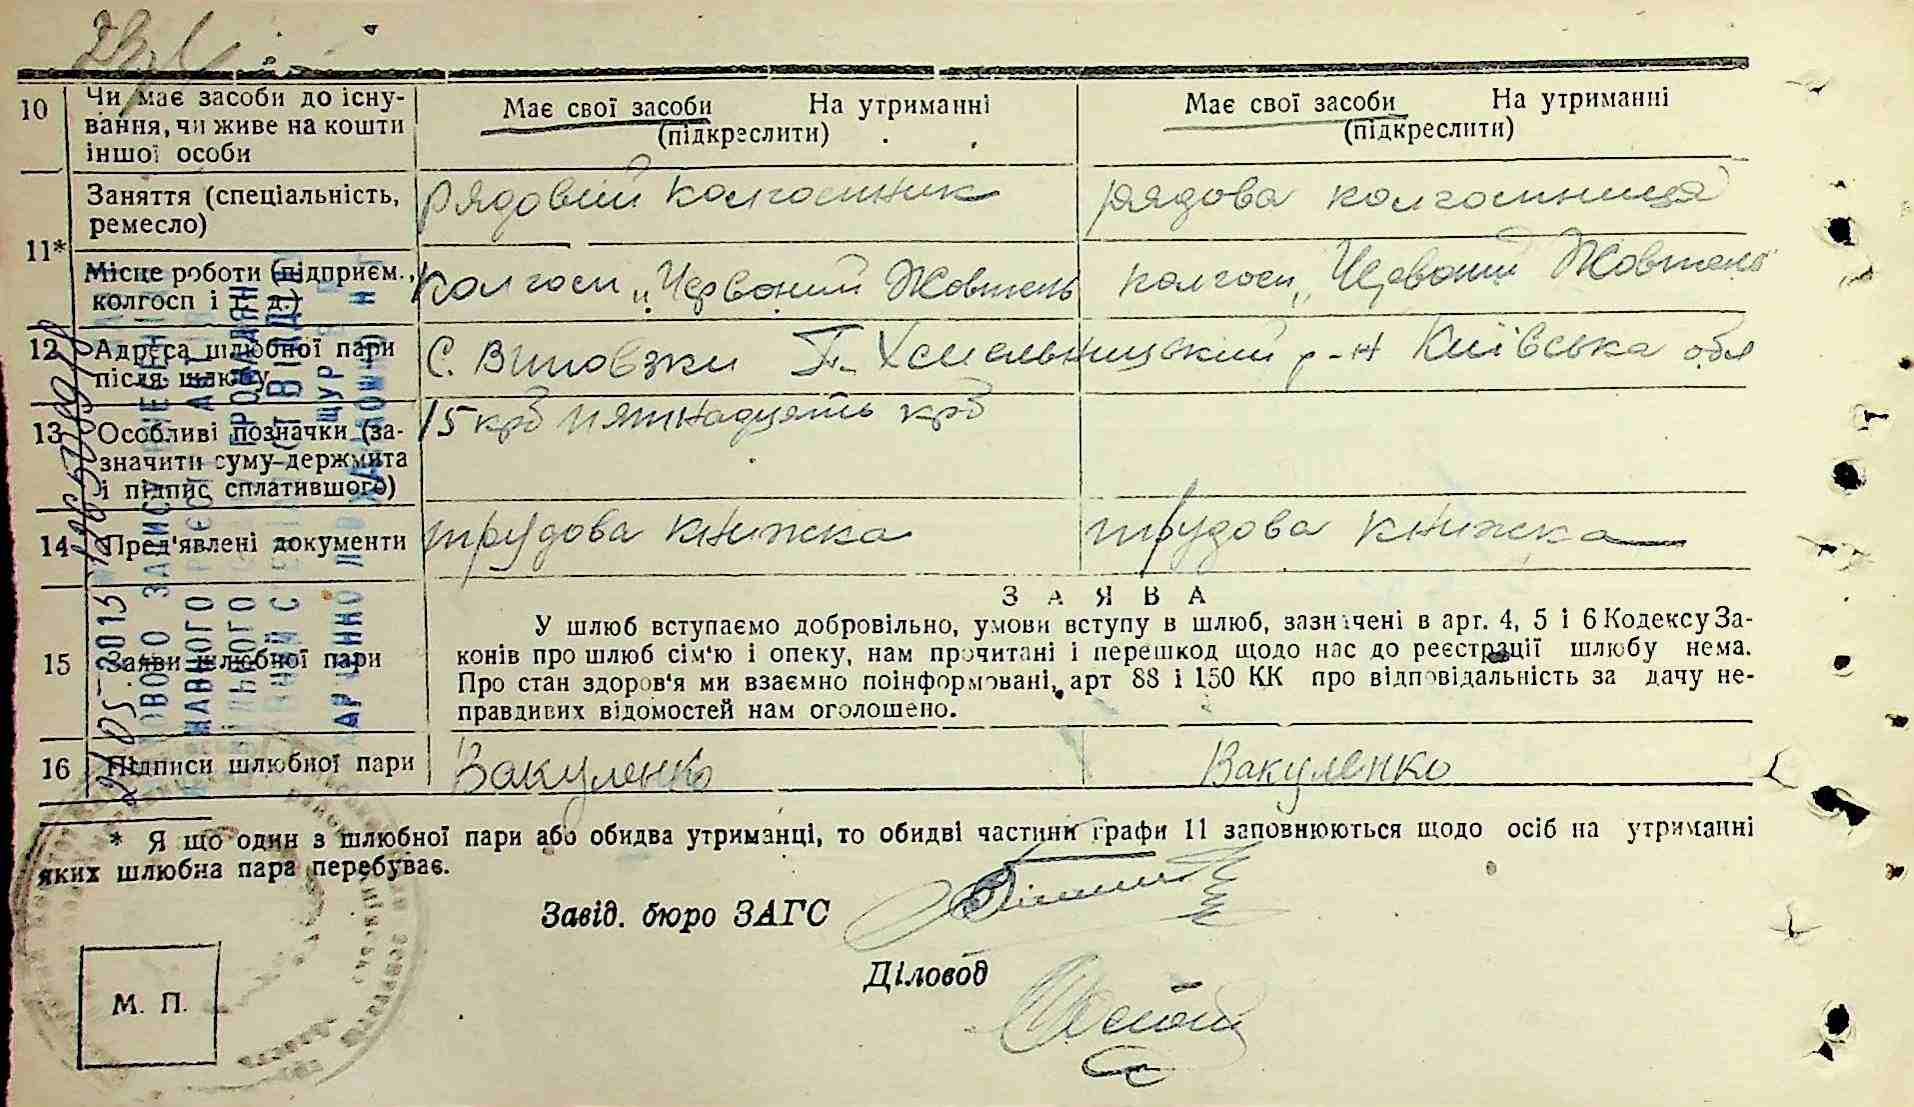 10 Чи має засоби до існу-
вання, чи живе на кошти
іншої особи
Має свої засоби На утриманні
(підкреслити)
Має свої засоби На утриманні
(підкреслити)
11*
Заняття (спеціальність,
ремесло)
рядовий колгоспник
рядова колгоспниця
Місце роботи (підприєм.,
колгосп і т. д.)
колгосп „Червоний Жовтень
колгосп „Червоний Жовтень
12 Адреса шлюбної пари
після шлюбу
С. Виповзки П-Хмельницький р-н Київська обл
13 Особливі позначки (за-
значити суму-держмита
і підпис сплатившого)
15 крб пятнадцять крб
14 Пред'явлені документи
трудова книжка
трудова книжка
15 Заяви шлюбної пари
ЗАЯВА
У шлюб вступаємо добровільно, умови вступу в шлюб, зазначені в арт. 4, 5 і 6 Кодексу За-
конів про шлюб сім'ю і опеку, нам прочитані і перешкод щодо нас до реєстрації шлюбу нема.
Про стан здоров'я ми взаємно поінформовані, арт 88 і 150 КК про відповідальність за дачу не-
правдивих відомостей нам оголошено.
16 Підписи шлюбної пари
Вакуленко
Вакуленко
* Я що один з шлюбної пари або обидва утриманці, то обидві частини графи 11 заповнюються щодо осіб на утриманні
яких шлюбна пара перебуває.
Завід. бюро ЗАГС
Діловод
М. П.